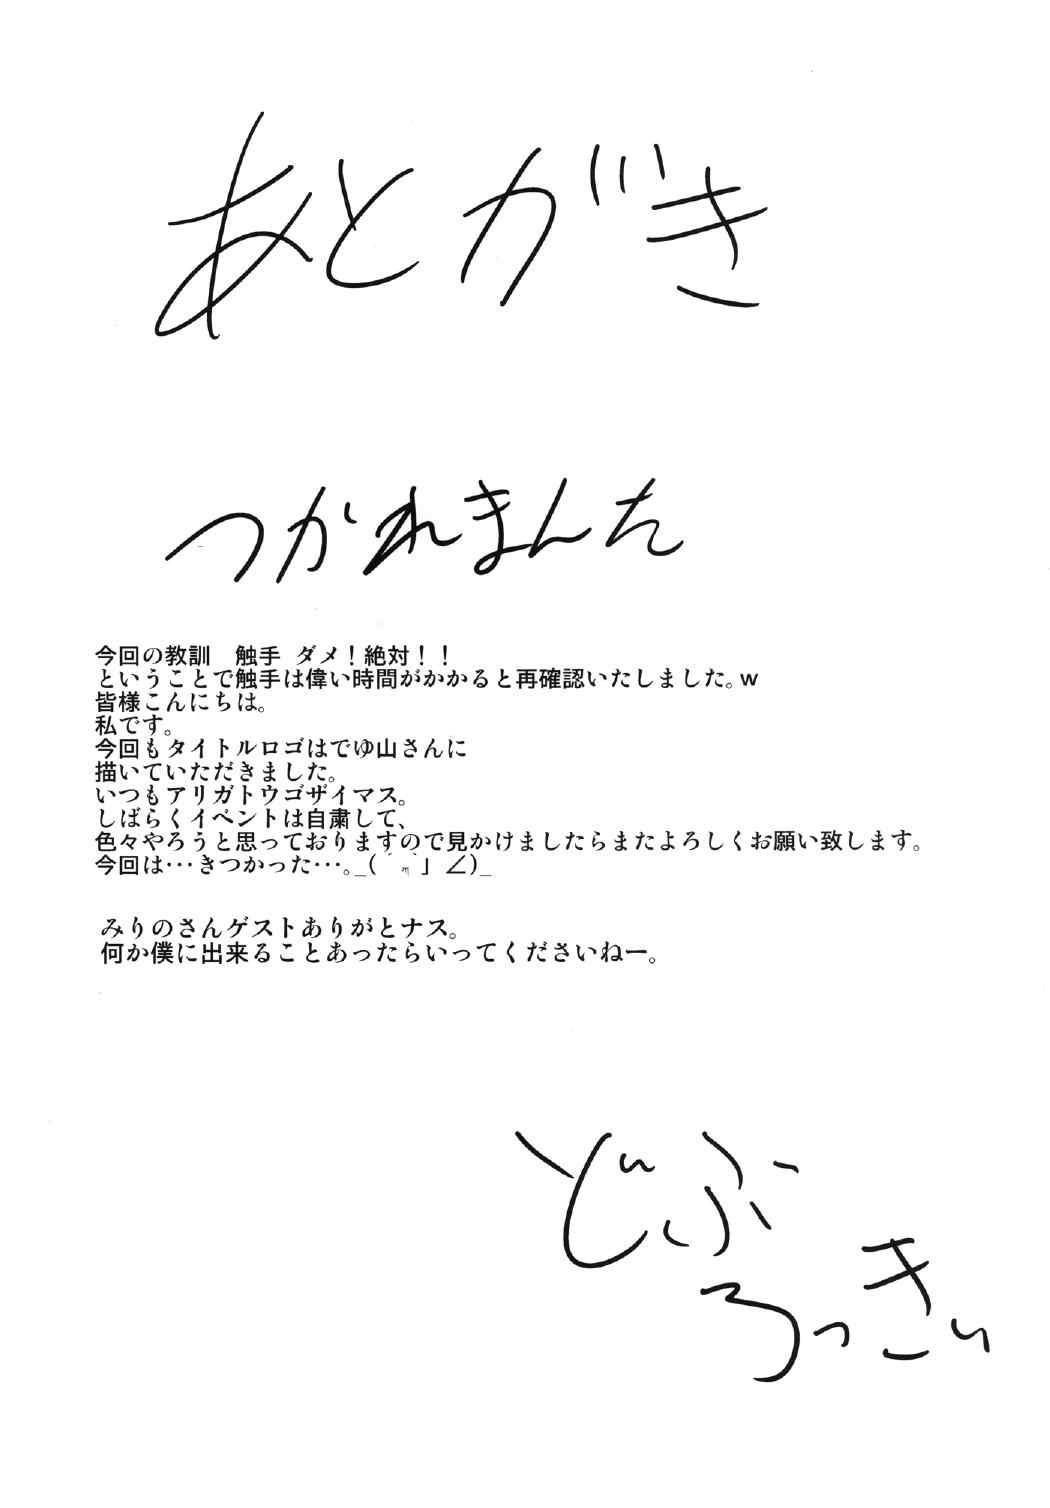 あとがき
つかれまんた
今回の教訓　触手 ダメ！絶対！！
ということで触手は偉い時間がかかると再確認いたしました。w
皆様こんにちは。
私です。
今回もタイトルロゴはでゆ山さんに
描いていただきました。
いつもアリガトウゴザイマス。
しばらくイベントは自粛して、
色々やろうと思っておりますので見かけましたらまたよろしくお願い致します。
今回は…きつかった…。_(´ཀ`」 ∠)_
みりのさんゲストありがとナス。
何か僕に出来ることあったらいってくださいねー。
どぶ
ろっきぃ